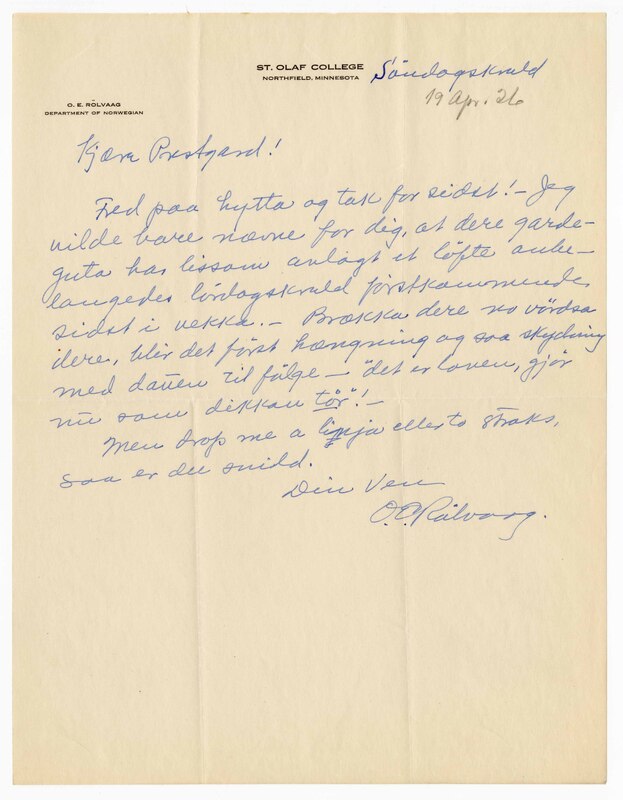 ST. OLAF COLLEGE
NORTHFIELD, MINNESOTA
Söndagskveld
19 Apr. 26
O. E. RÖLVAAG
DEPARTMENT OF NORWEGIAN
Kjære Prestgard!
Fred paa hytta og tak for sidst! — Jeg
vilde bare nævne for dig, at dere garde-
guta har lissom avlagt et löfte anbe-
langedes lördagskveld förstkommende
sidst i vekka. — Brækka dere no vördsa
dere, blir det först hængning og saa skydning
med dauen til fölge — "det er loven, gjör
nu som dikkan tör"! —
Men drop me a linja eller to straks,
saa er du snild.
Din Ven
O. E. Rölvaag.